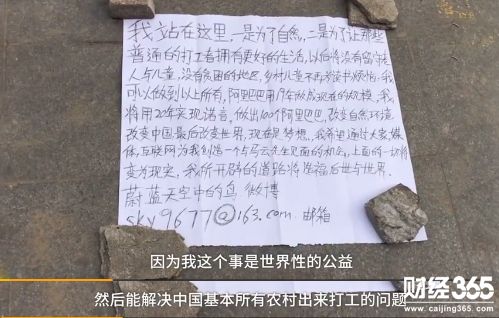 我站在这里，一是为了自然，二是为了让那些
普通的打工者拥有更好的生活，以后将没有留守老
人与儿童，没有贫困的地区，乡村儿童不再为读书烦恼，我
可以做到以上所有，阿里巴巴用19年做成现在的规模，我
将用20年实现诺言，做出100个阿里巴巴，改变自然环境
改变中国最后改变世界，现在是梦想，我希望通过大家，媒
体，互联网为我创造一个与马云先生见面的机会，上面的一切将
变为现实，我所开辟的道路将造福后世与世界。
蔚蓝天空中的 微博
sky9677@163.com 邮箱
因为我这个事是世界性的公益
然后能解决中国基本所有农村出来打工的问题
财经365
www.caijing365.com